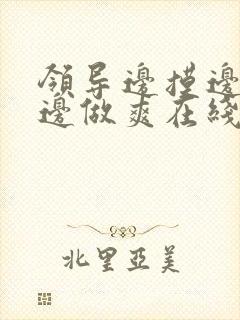 領导邊摸邊
邊做爽在綫
北里亞美